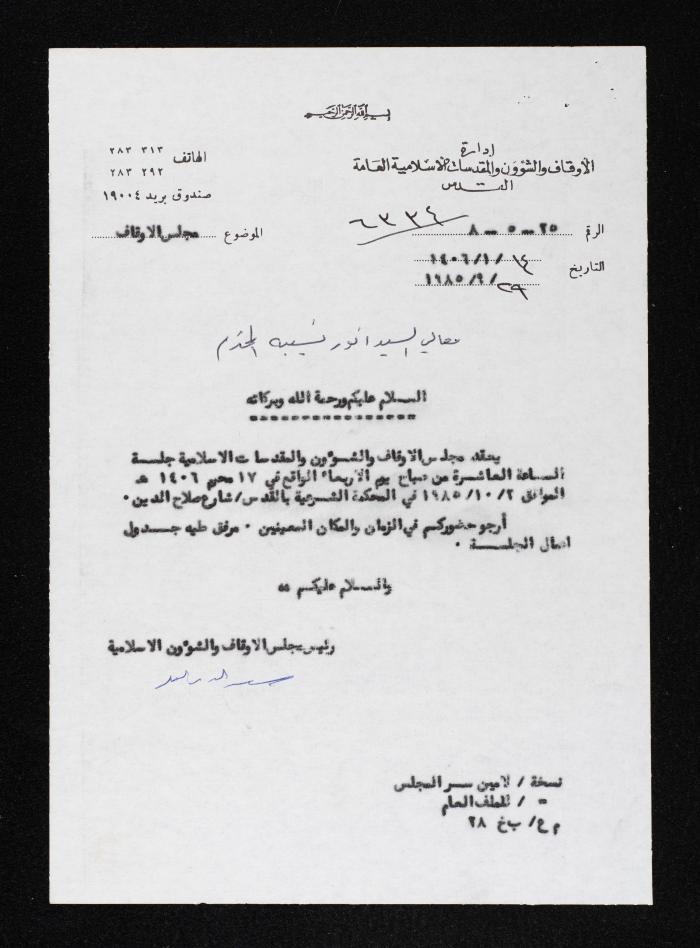 بسم الله الرحمن الرحيم
إدارة
الأوقاف والشؤون والمقدسات الاسلامية العامة
القدس
الهاتف ٢٨٣ ٣١٣
٢٨٣ ٢٩٢
صندوق بريد ١٩٠٠٤
الرقم ٢٥ - ٥ - ٨ ٦٣٣٤
الموضوع مجلس الاوقاف
التاريخ ١٤ /١/ ١٤٠٦
٢٩ /٩/ ١٩٨٥
معالي السيد انور نسيبه المحترم
السلام عليكم ورحمة الله وبركاته
يعقد مجلس الاوقاف والشؤون والمقدسات الاسلامية جلسة
الساعة العاشرة من صباح يوم الأربعاء الواقع في ١٧ محرم ١٤٠٦ هـ
الموافق ١٩٨٥/١٠/٢ في المحكمة الشرعية بالقدس/شارع صلاح الدين ٠
أرجو حضوركم في الزمان والمكان المعينين ٠ مرفق طيه جدول
اعمال الجلسة ٠
والسلام عليكم ،،
رئيس مجلس الاوقاف والشؤون الاسلامية
نسخة / لامين سر المجلس
" / للملف العام
م ع/ ب خ ٢٨